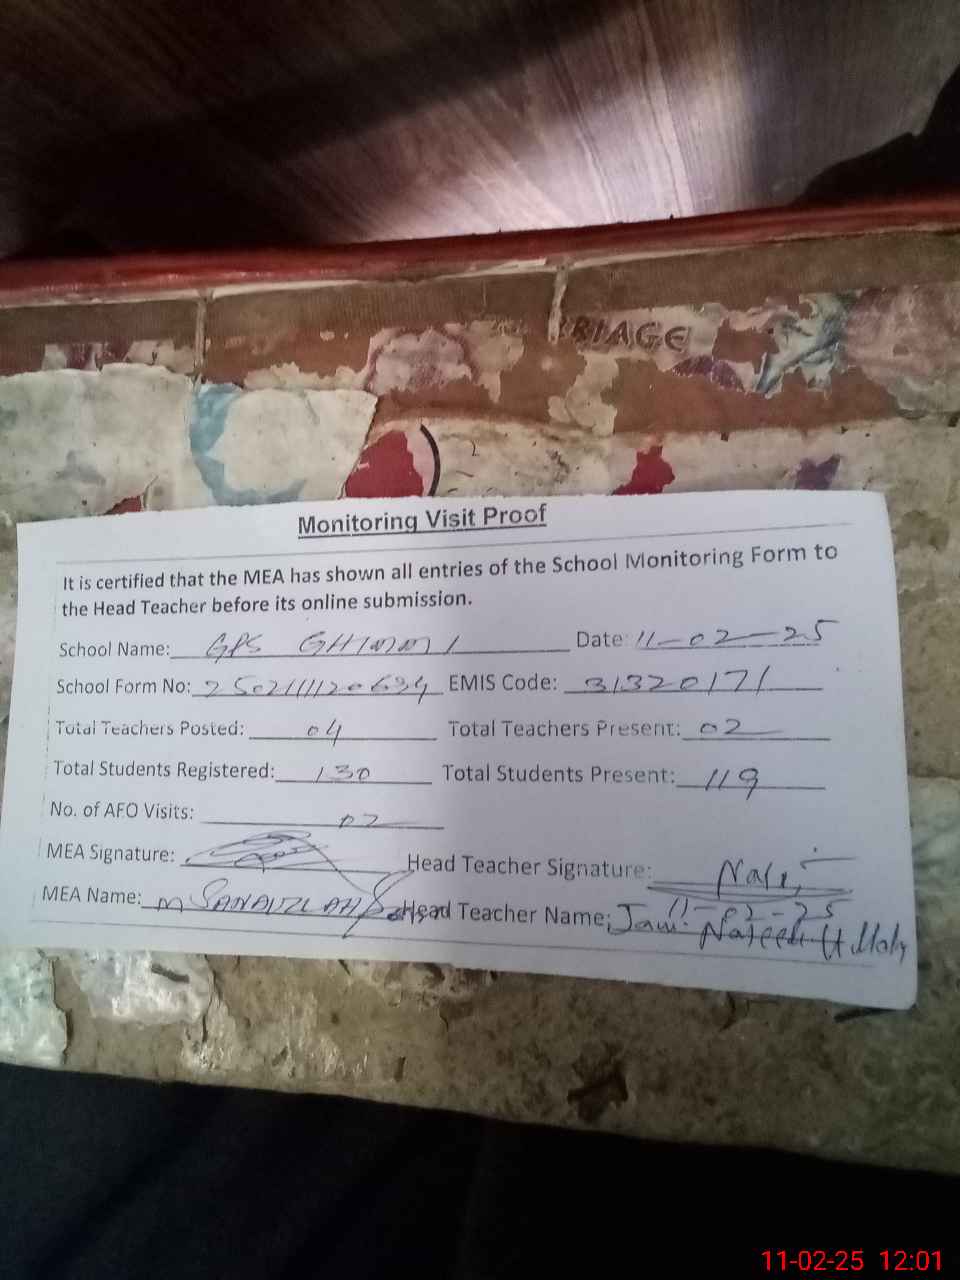 RIAGE
Monitoring Visit Proof
It is certified that the MEA has shown all entries of the School Monitoring Form to
the Head Teacher before its online submission.
School Name: GPS GHIMMI Date: 11-02-25
School Form No: 2502111120634 EMIS Code: 31320171
Total Teachers Posted: 04 Total Teachers Present: 02
Total Students Registered: 130 Total Students Present: 119
No. of AFO Visits: 02
MEA Signature: Head Teacher Signature:
11-02-25
MEA Name: M SANAULLAH Head Teacher Name: Jam
11-02-25 12:01